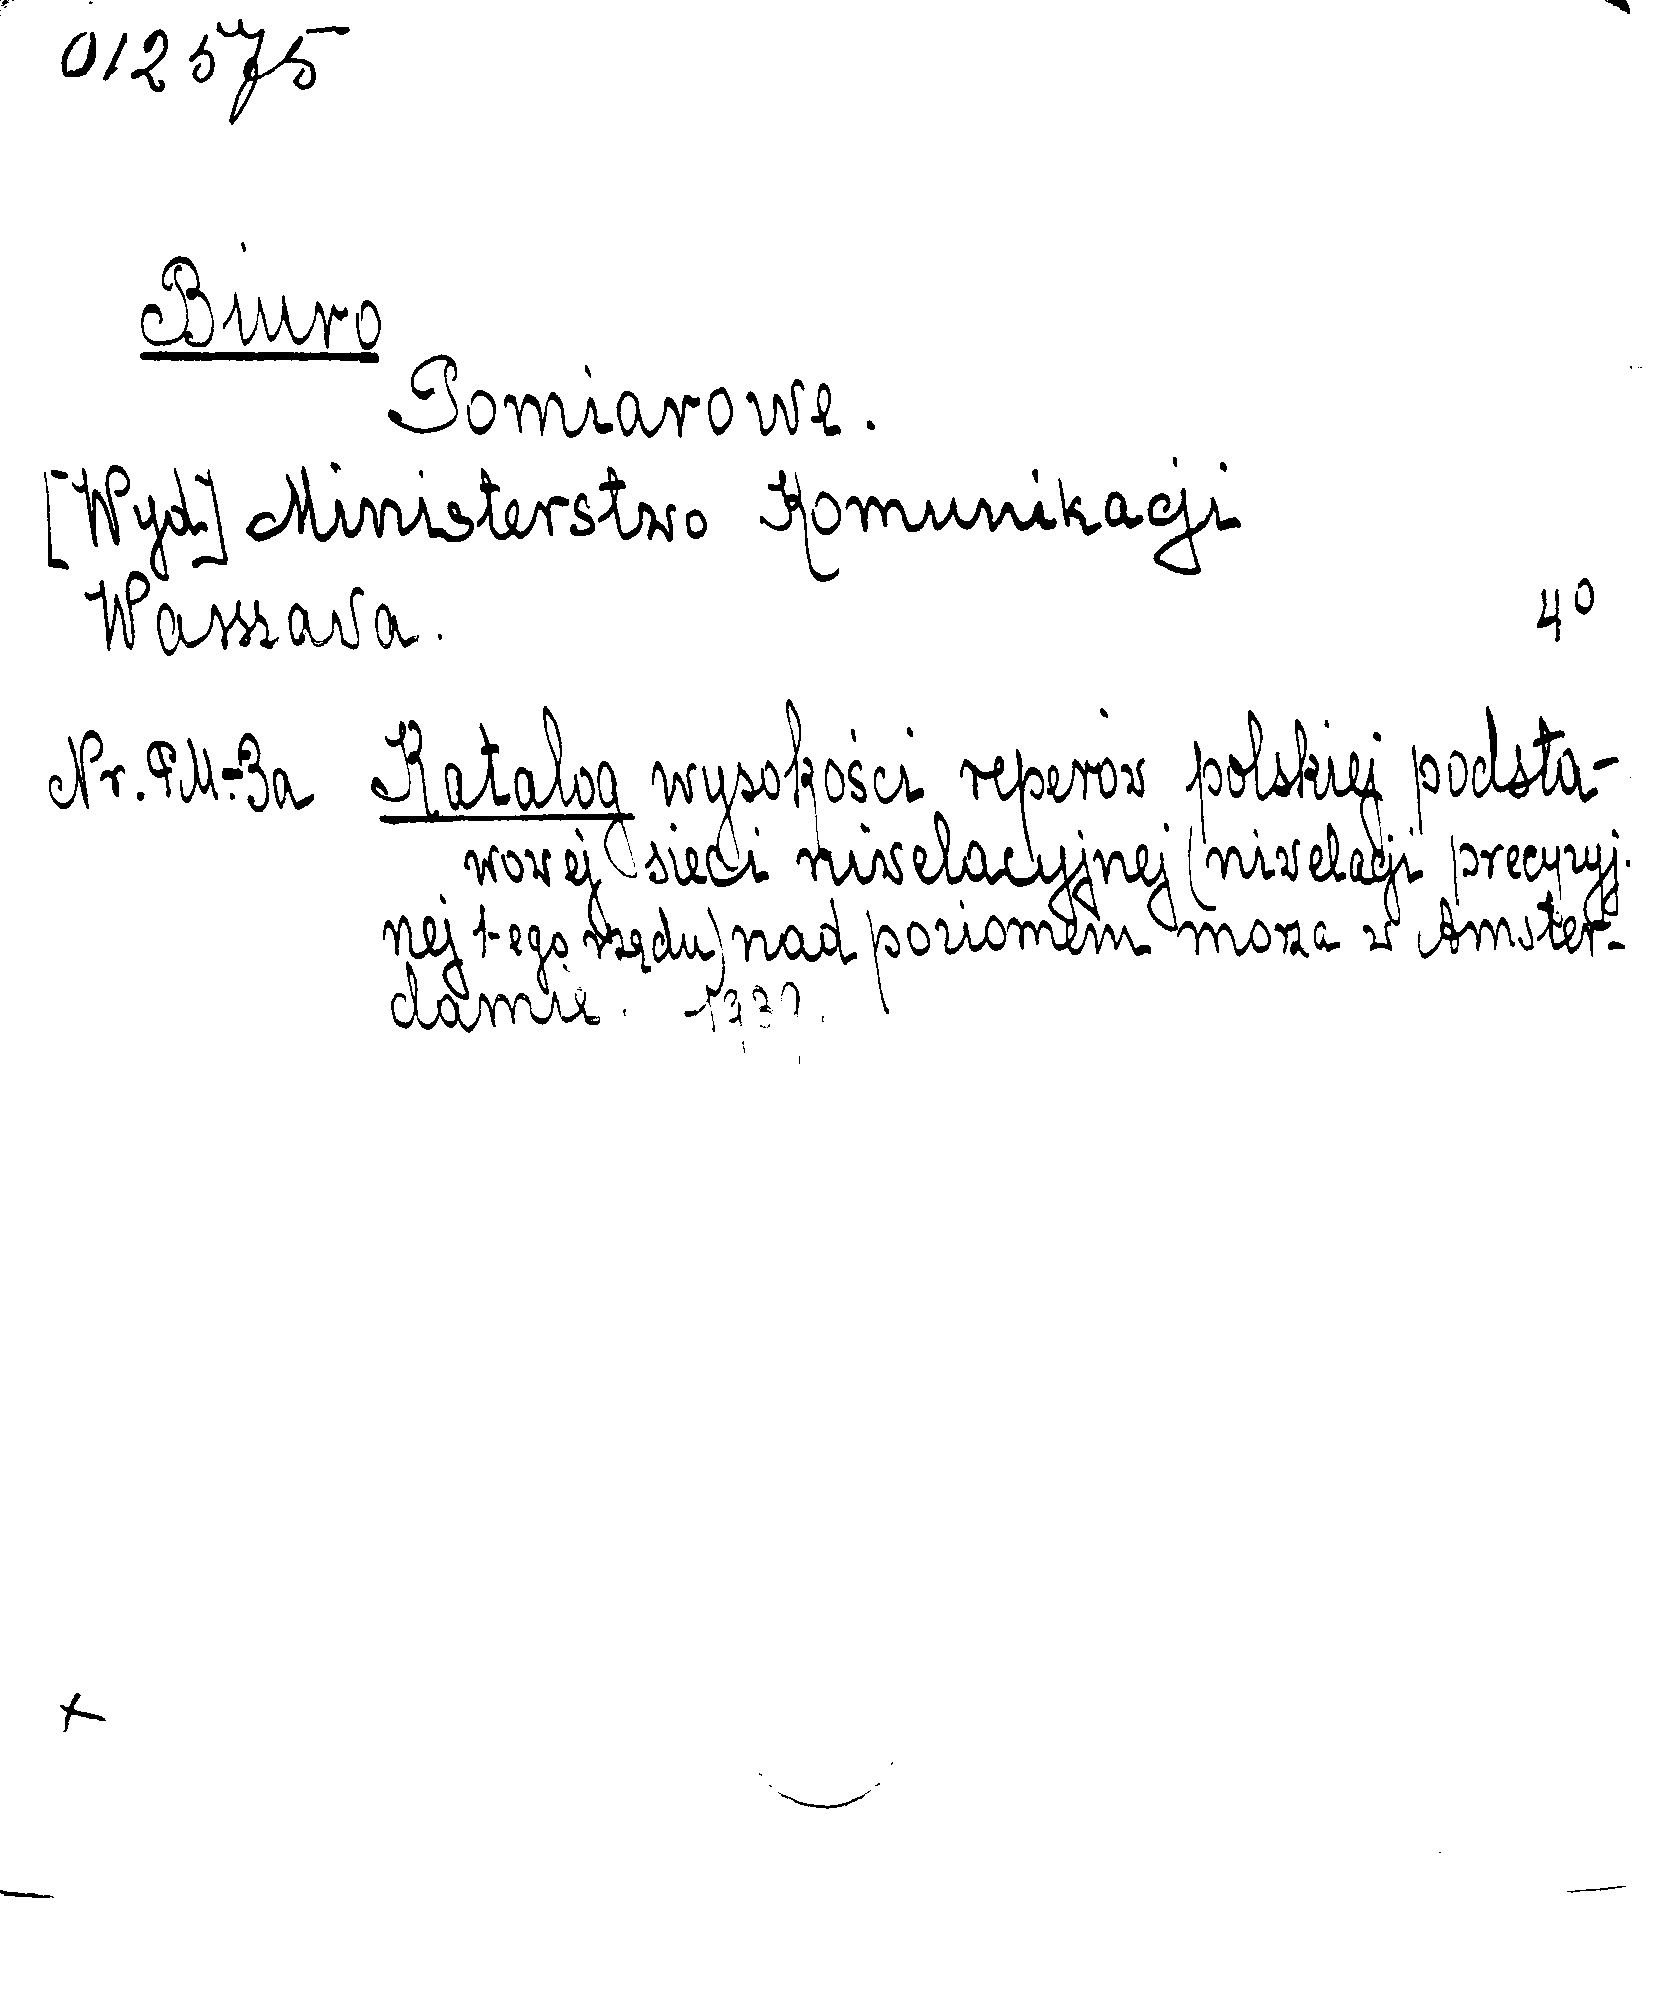 012575
Biuro
Pomiarowe.
[Wyd.] Ministerstwo Komunikacji
Warszawa. 4°
Nr. PM-3a Katalog wysokości reperów polskiej podsta-
wowej sieci niwelacyjnej (niwelacji precyzyj-
nej 1-ego rzędu) nad poziomem morza w Amster-
damie.